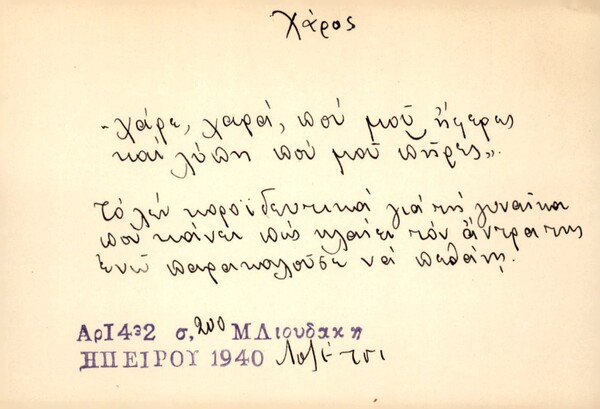 Χάρος
"Χάρε, χαρά, πού μοῦ ἤφερες
καί λύπη πού μοῦ πῆρες".
Τό λέν κοροϊδευτικά γιά τή γυναῖκα
πού κάνει πώς κλαίει τόν ἄντρα της
ἐνῶ παρακαλοῦσε νά πεθάνῃ.
Αρ1432 σ, 200 ΜΛιουδακη
ΗΠΕΙΡΟΥ 1940 Λοζέτσι